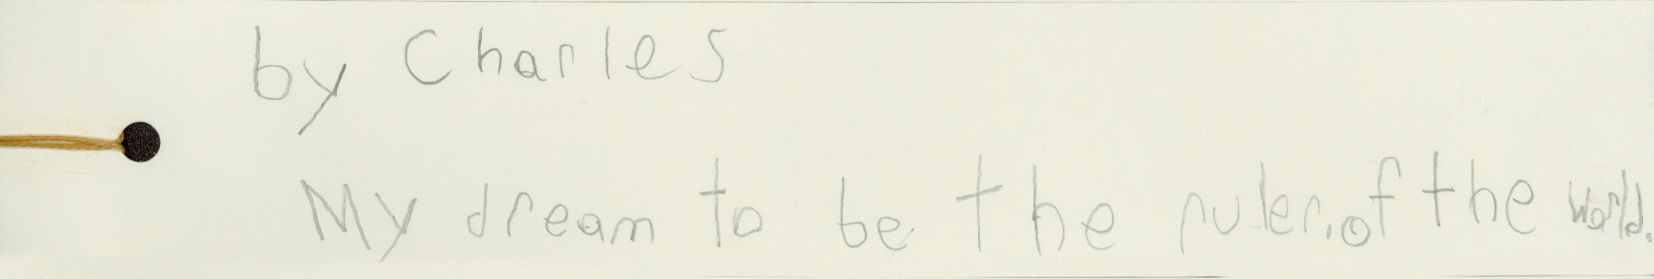 by Charles
My dream to be the ruler.of the world.